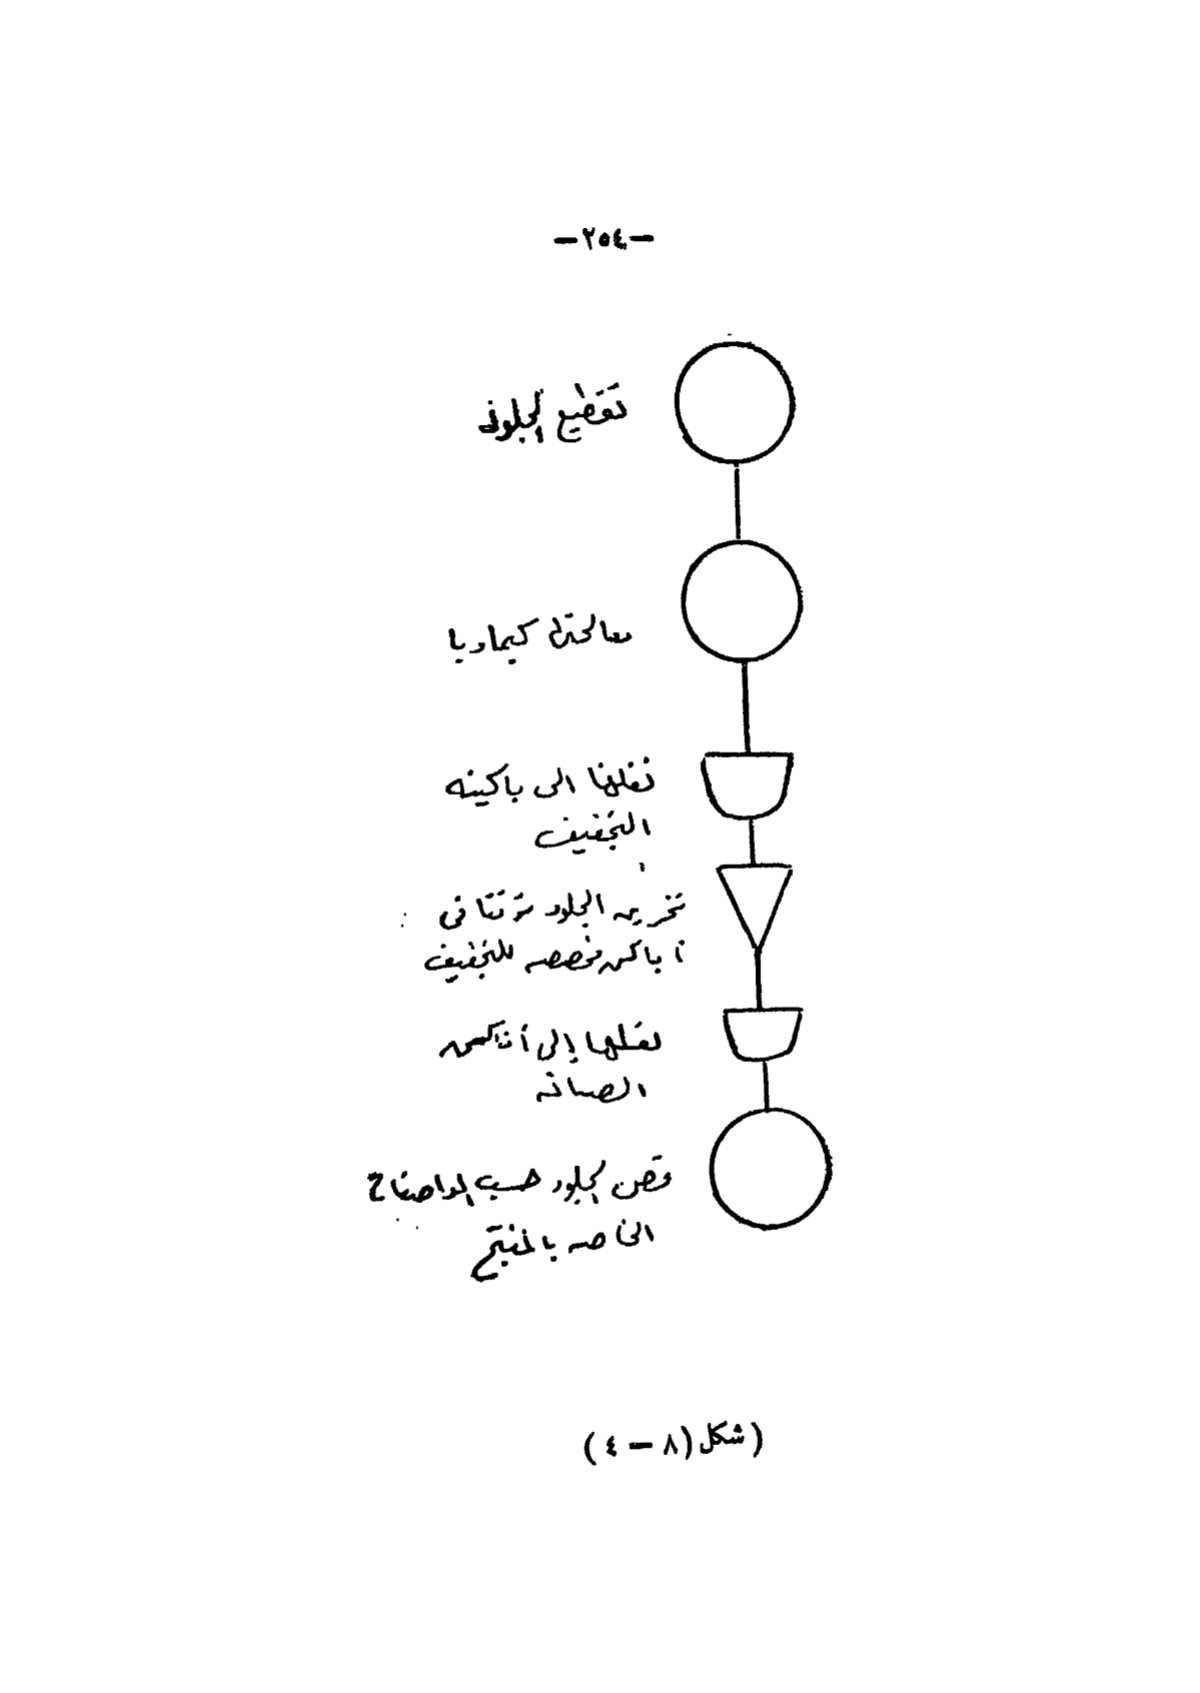 -٢٥٤-
تقطيع الجلود
معالجتها كيماويا
نقلها الى باكينه
التجفيف
تخزين الجلود مؤقتا فى
أباكن مخصصه للتجفيف
نقلها إلى أماكن
الصيانه
قص الجلود حسب المواصفات
الخاصه بالمنتج
(شكل (٨ - ٤)